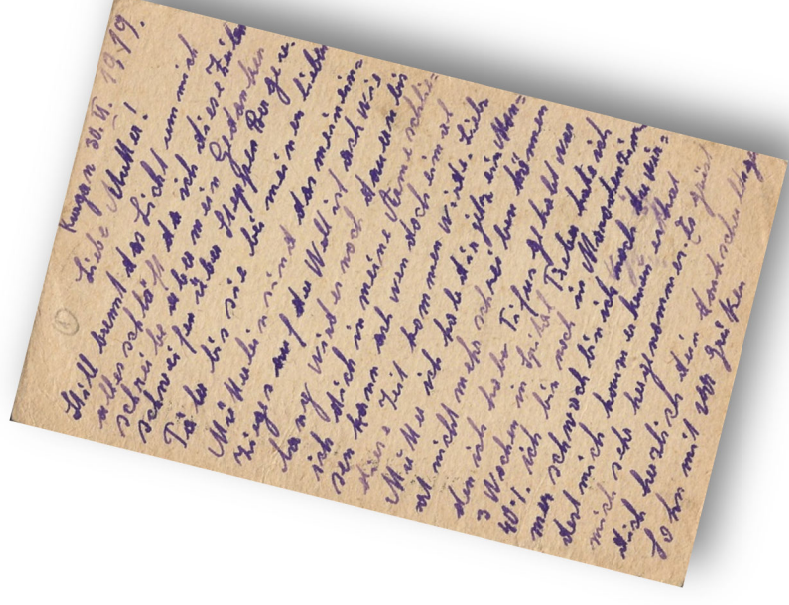 Kurgan 30. V. 1919.
Liebe Mutter!
Still brennt das Licht um mich
alles schläft da ich diese Zeilen
schreibe aber mein Gedanken
schweifen über Steppen Berge u.
Täler bis sie bei meinen lieben
Mütterlein sind das mein ein-
ziges auf der Welt ist ach wie
lang wird es noch dauern bis
ich dich in meine Arme schlie-
sen kann ach wen doch einmal
diese Zeit kommen wirde. Liebe
Mutter ich habe dir jetz ein Mon-
at nicht mehr schreiben können
den ich habe Tifus gehabt war
3 Wochen in Spital Fieber hate ich
40·1. ich bin noch in Marodenzim
mer schwach bin ich noch du wir-
dest mich kaum erkenen es hat
mich sehr hergenommen. Es grüst
dich herzlich dein dankschuldiger
Sohn mit grüsen